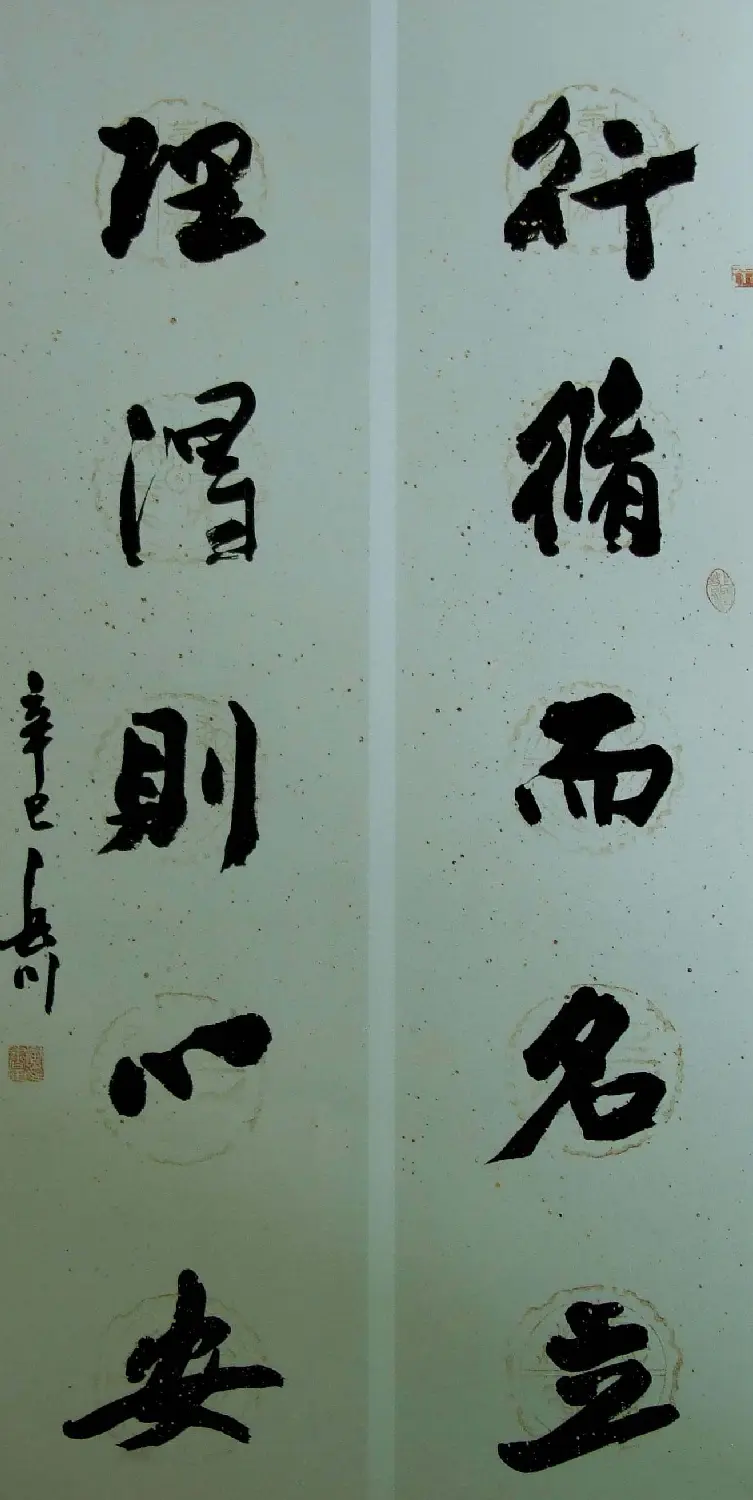 行脩而名立
理得則心安
辛巳 岳川